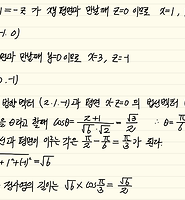 1 = -z 가 xy평면과 만날때 z=0 이므로 x=1,
-1. 0)
면과 만날때 y=0이므로 x=3, z=-1
0. -1)
법선벡터 (2. 1. -1) 과 평면 x-z=0 의 법선벡터 (
θ라고 할때 cosθ = (2+1)/(√6·√2) = √3/2 ∴ θ = π/6
선과 평면이 이루는 각은 π/2 - π/6 = π/3 가 된다
+1²+(-1)² = √6
정사영의 길이는 √6 × cos π/3 = √6/2